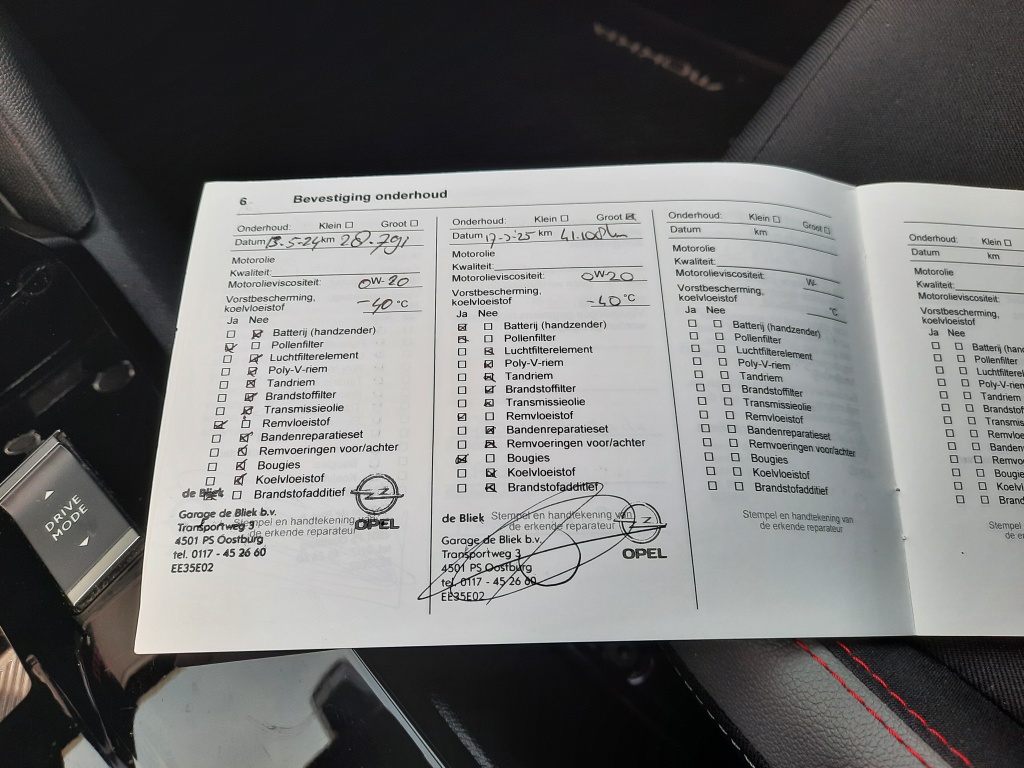 6 Bevestiging onderhoud
Onderhoud: Klein Groot
Datum 13-5-24 km 28.791
Motorolie
Kwaliteit:
Motorolieviscositeit: 0W-20
Vorstbescherming,
koelvloeistof -40 °C
Ja Nee
Batterij (handzender)
Pollenfilter
Luchtfilterelement
Poly-V-riem
Tandriem
Brandstoffilter
Transmissieolie
Remvloeistof
Bandenreparatieset
Remvoeringen voor/achter
Bougies
Koelvloeistof
Brandstofadditief
de Bliek
Garage de Bliek b.v.
Stempel en handtekening van
de erkende reparateur
Transportweg 3
4501 PS Oostburg
tel. 0117 - 45 26 60
EE35E02
OPEL
Onderhoud: Klein Groot
Datum 17-3-'25 km 41.108km
Motorolie
Kwaliteit:
Motorolieviscositeit: 0W20
Vorstbescherming,
koelvloeistof -40 °C
Ja Nee
Batterij (handzender)
Pollenfilter
Luchtfilterelement
Poly-V-riem
Tandriem
Brandstoffilter
Transmissieolie
Remvloeistof
Bandenreparatieset
Remvoeringen voor/achter
Bougies
Koelvloeistof
Brandstofadditief
Stempel en handtekening van
de erkende reparateur
de Bliek
Garage de Bliek b.v.
Transportweg 3
4501 PS Oostburg
tel. 0117 - 45 26 60
EE35E02
OPEL
Onderhoud: Klein Groot
Datum km
Motorolie
Kwaliteit:
Motorolieviscositeit: W-
Vorstbescherming,
koelvloeistof °C
Ja Nee
Batterij (handzender)
Pollenfilter
Luchtfilterelement
Poly-V-riem
Tandriem
Brandstoffilter
Transmissieolie
Remvloeistof
Bandenreparatieset
Remvoeringen voor/achter
Bougies
Koelvloeistof
Brandstofadditief
Stempel en handtekening van
de erkende reparateur
Onderhoud: Klein
Datum km
Motorolie
Kwaliteit:
Motorolieviscositeit:
Vorstbescherming,
koelvloeistof
Ja Nee
Batterij (han
Pollenfilter
Luchtfilterel
Poly-V-rie
Tandriem
Brandstof
Transmis
Remvloe
Banden
Remvo
Bougies
Koelv
Brand
Stempel
de e
DRIVE
MODE